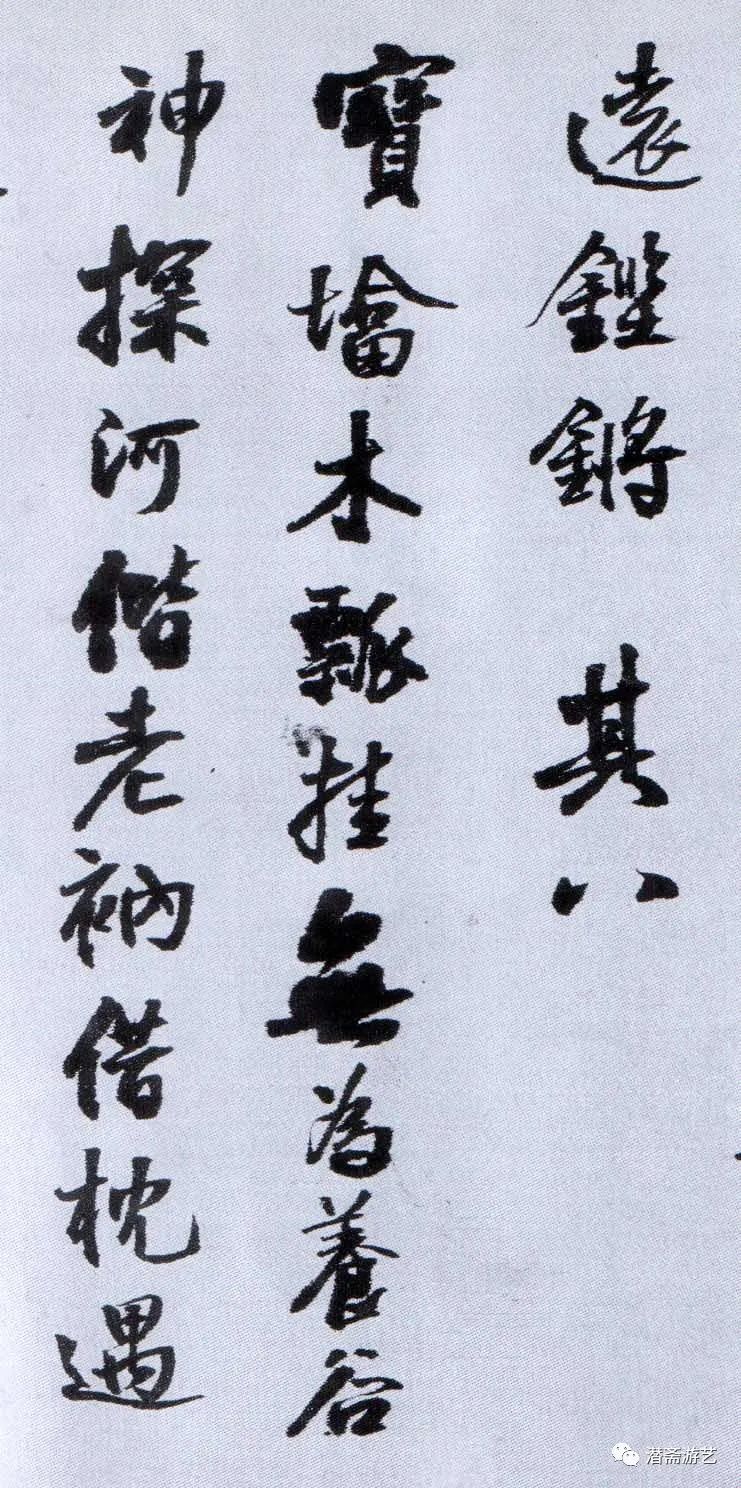 遠鏗鏘 其八
寶墖木瓢挂無為養谷
神探河偕老衲借枕遇
潜斋游艺